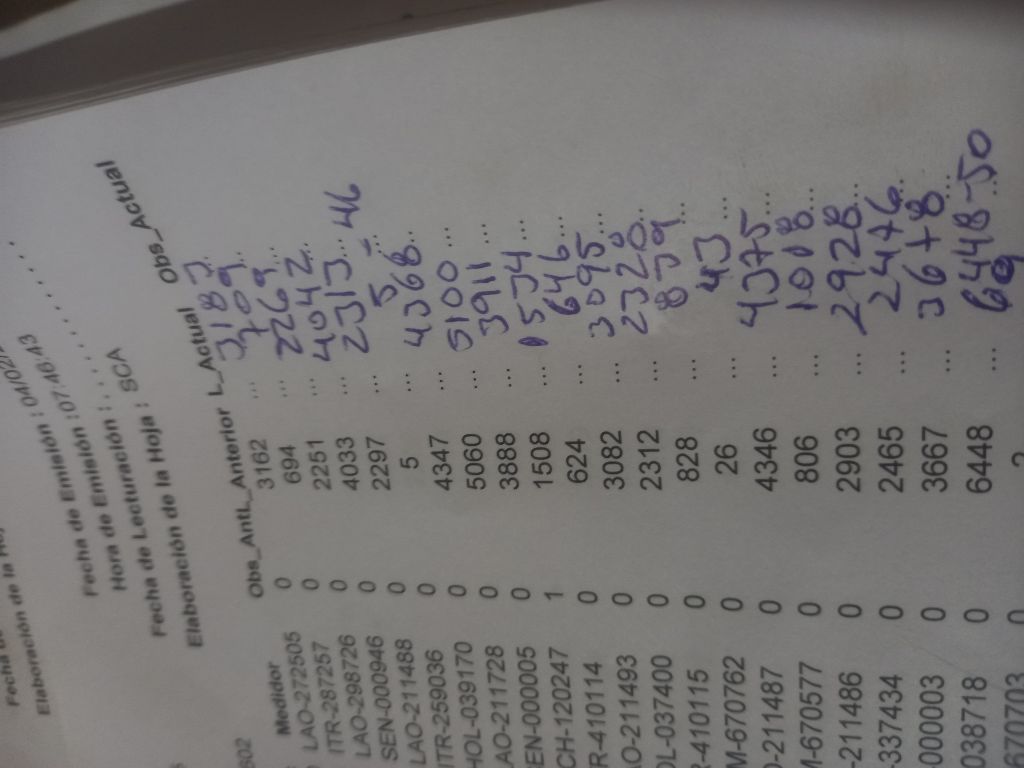 Elaboración de la
Fecha de Emisión : 04/02/
Hora de Emisión : 07:46:43
Fecha de Lecturación : . . . . . . . . . .
Elaboración de la Hoja : SCA
Medidor Obs_Ant L_Anterior L_Actual Obs_Actual
LAO-272505 0 3162 ... 3183 ...
ITR-287257 0 694 ... 709 ...
LAO-298726 0 2251 ... 2269 ...
SEN-0000946 0 4033 ... 4042 ...
LAO-211488 0 2297 ... 2313 ... 46
ITR-259036 0 5 ... 5 - ...
HOL-039170 0 4347 ... 4368 ...
AO-211728 0 5060 ... 5100 ...
EN-000005 0 3888 ... 3911 ...
CH-120247 1 1508 ... 1534 ...
R-410114 0 624 ... 646 ...
AO-211493 0 3082 ... 3095 ...
OL-037400 0 2312 ... 2320 ...
R-410115 0 828 ... 839 ...
M-670762 0 26 ... 43 ...
0-211487 0 4346 ... 4375 ...
M-670577 0 806 ... ...
-211486 0 2903 ... 2928 ...
-337434 0 2465 ... 2476 ...
000003 0 3667 ... 3678 ...
038718 0 6448 ... 6448-50
670703 0